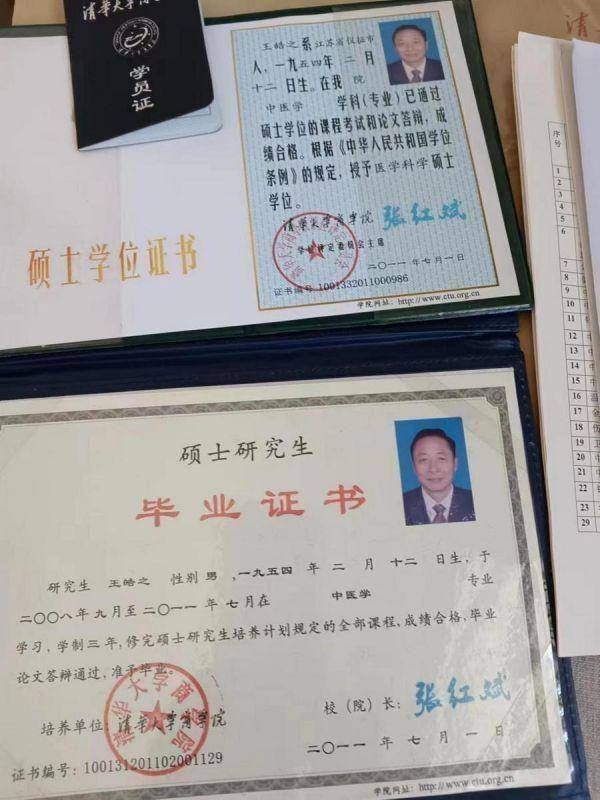 清华大学商
学员证
王皓之系江苏省仪征市
人，一九五四年 二 月
十二 日生。在我 院
中医学 学科(专业)已通过
硕士学位的课程考试和论文答辩，成
绩合格。根据《中华人民共和国学位
条例》的规定，授予医学科学硕士
学位。
硕士学位证书
清华大学商学院 张红斌
学位评定委员会主席
二〇一一年七月一日
证书编号:1001332011000986
学院网址: http://www.ctu.org.cn
硕士研究生
毕业证书
研究生 王皓之 性别 男 ，一九五四 年 二 月 十二 日生，于
二〇〇八年 九月至二〇一一 年 七月在 中医学 专业
学习，学制三年，修完硕士研究生培养计划规定的全部课程，成绩合格，毕业
论文答辩通过，准予毕业。
清华大学商学院
培养单位: 清华大学商学院
校（院）长: 张红斌
二〇一一 年 七 月 一 日
证书编号: 100131201102001129
学院网址: http://www.ctu.org.cn
清
序号
1
2
3
4
5
6
7
8
9
10
11
12 中
13 中
14 中
15 中
16 温
17 金
18 伤
19 卫
20 中
21 中
22
23
29